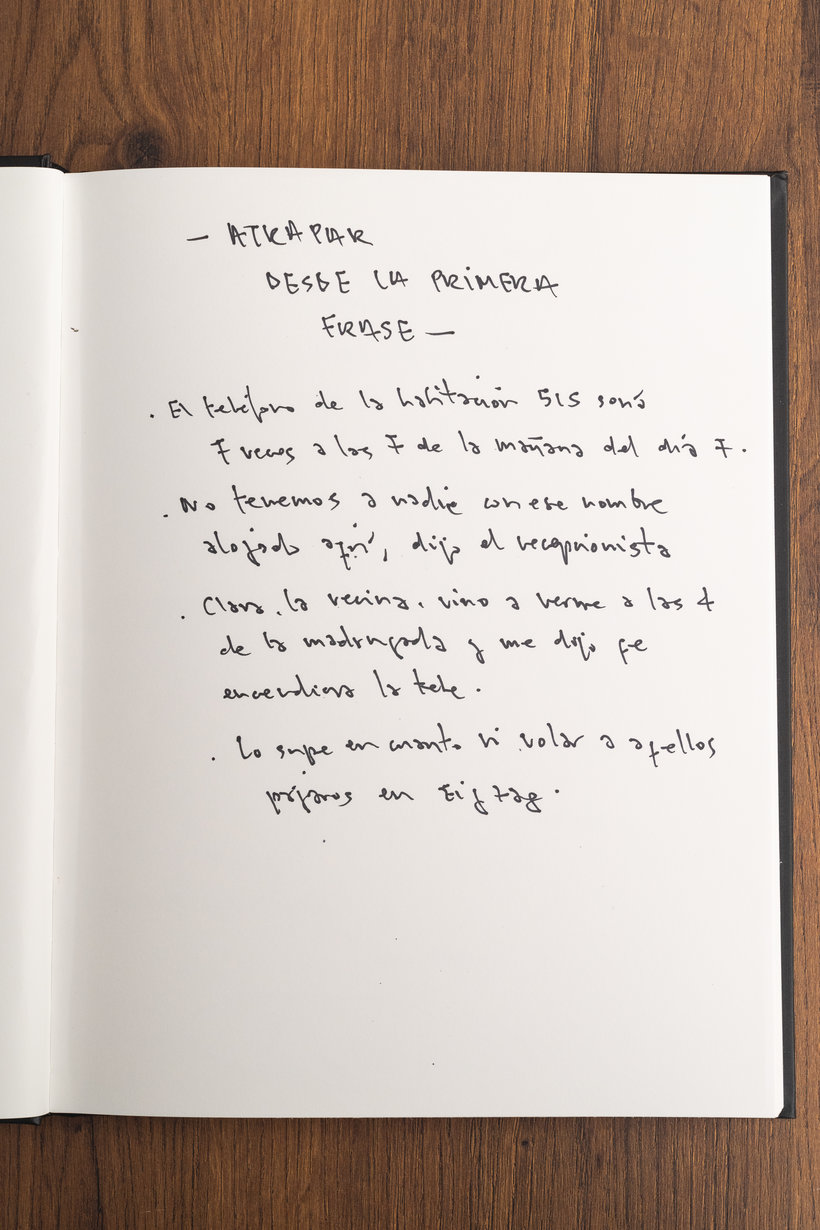 — ATRAPAR
DESDE LA PRIMERA
FRASE —
. El teléfono de la habitación 515 sonó
7 veces a las 7 de la mañana del día 7.
. No tenemos a nadie con ese nombre
alojado aquí, dijo el recepcionista
. Clara, la vecina, vino a verme a las 4
de la madrugada y me dijo que
encendiera la tele.
. Lo supe en cuanto vi volar a aquellos
pájaros en zig zag.